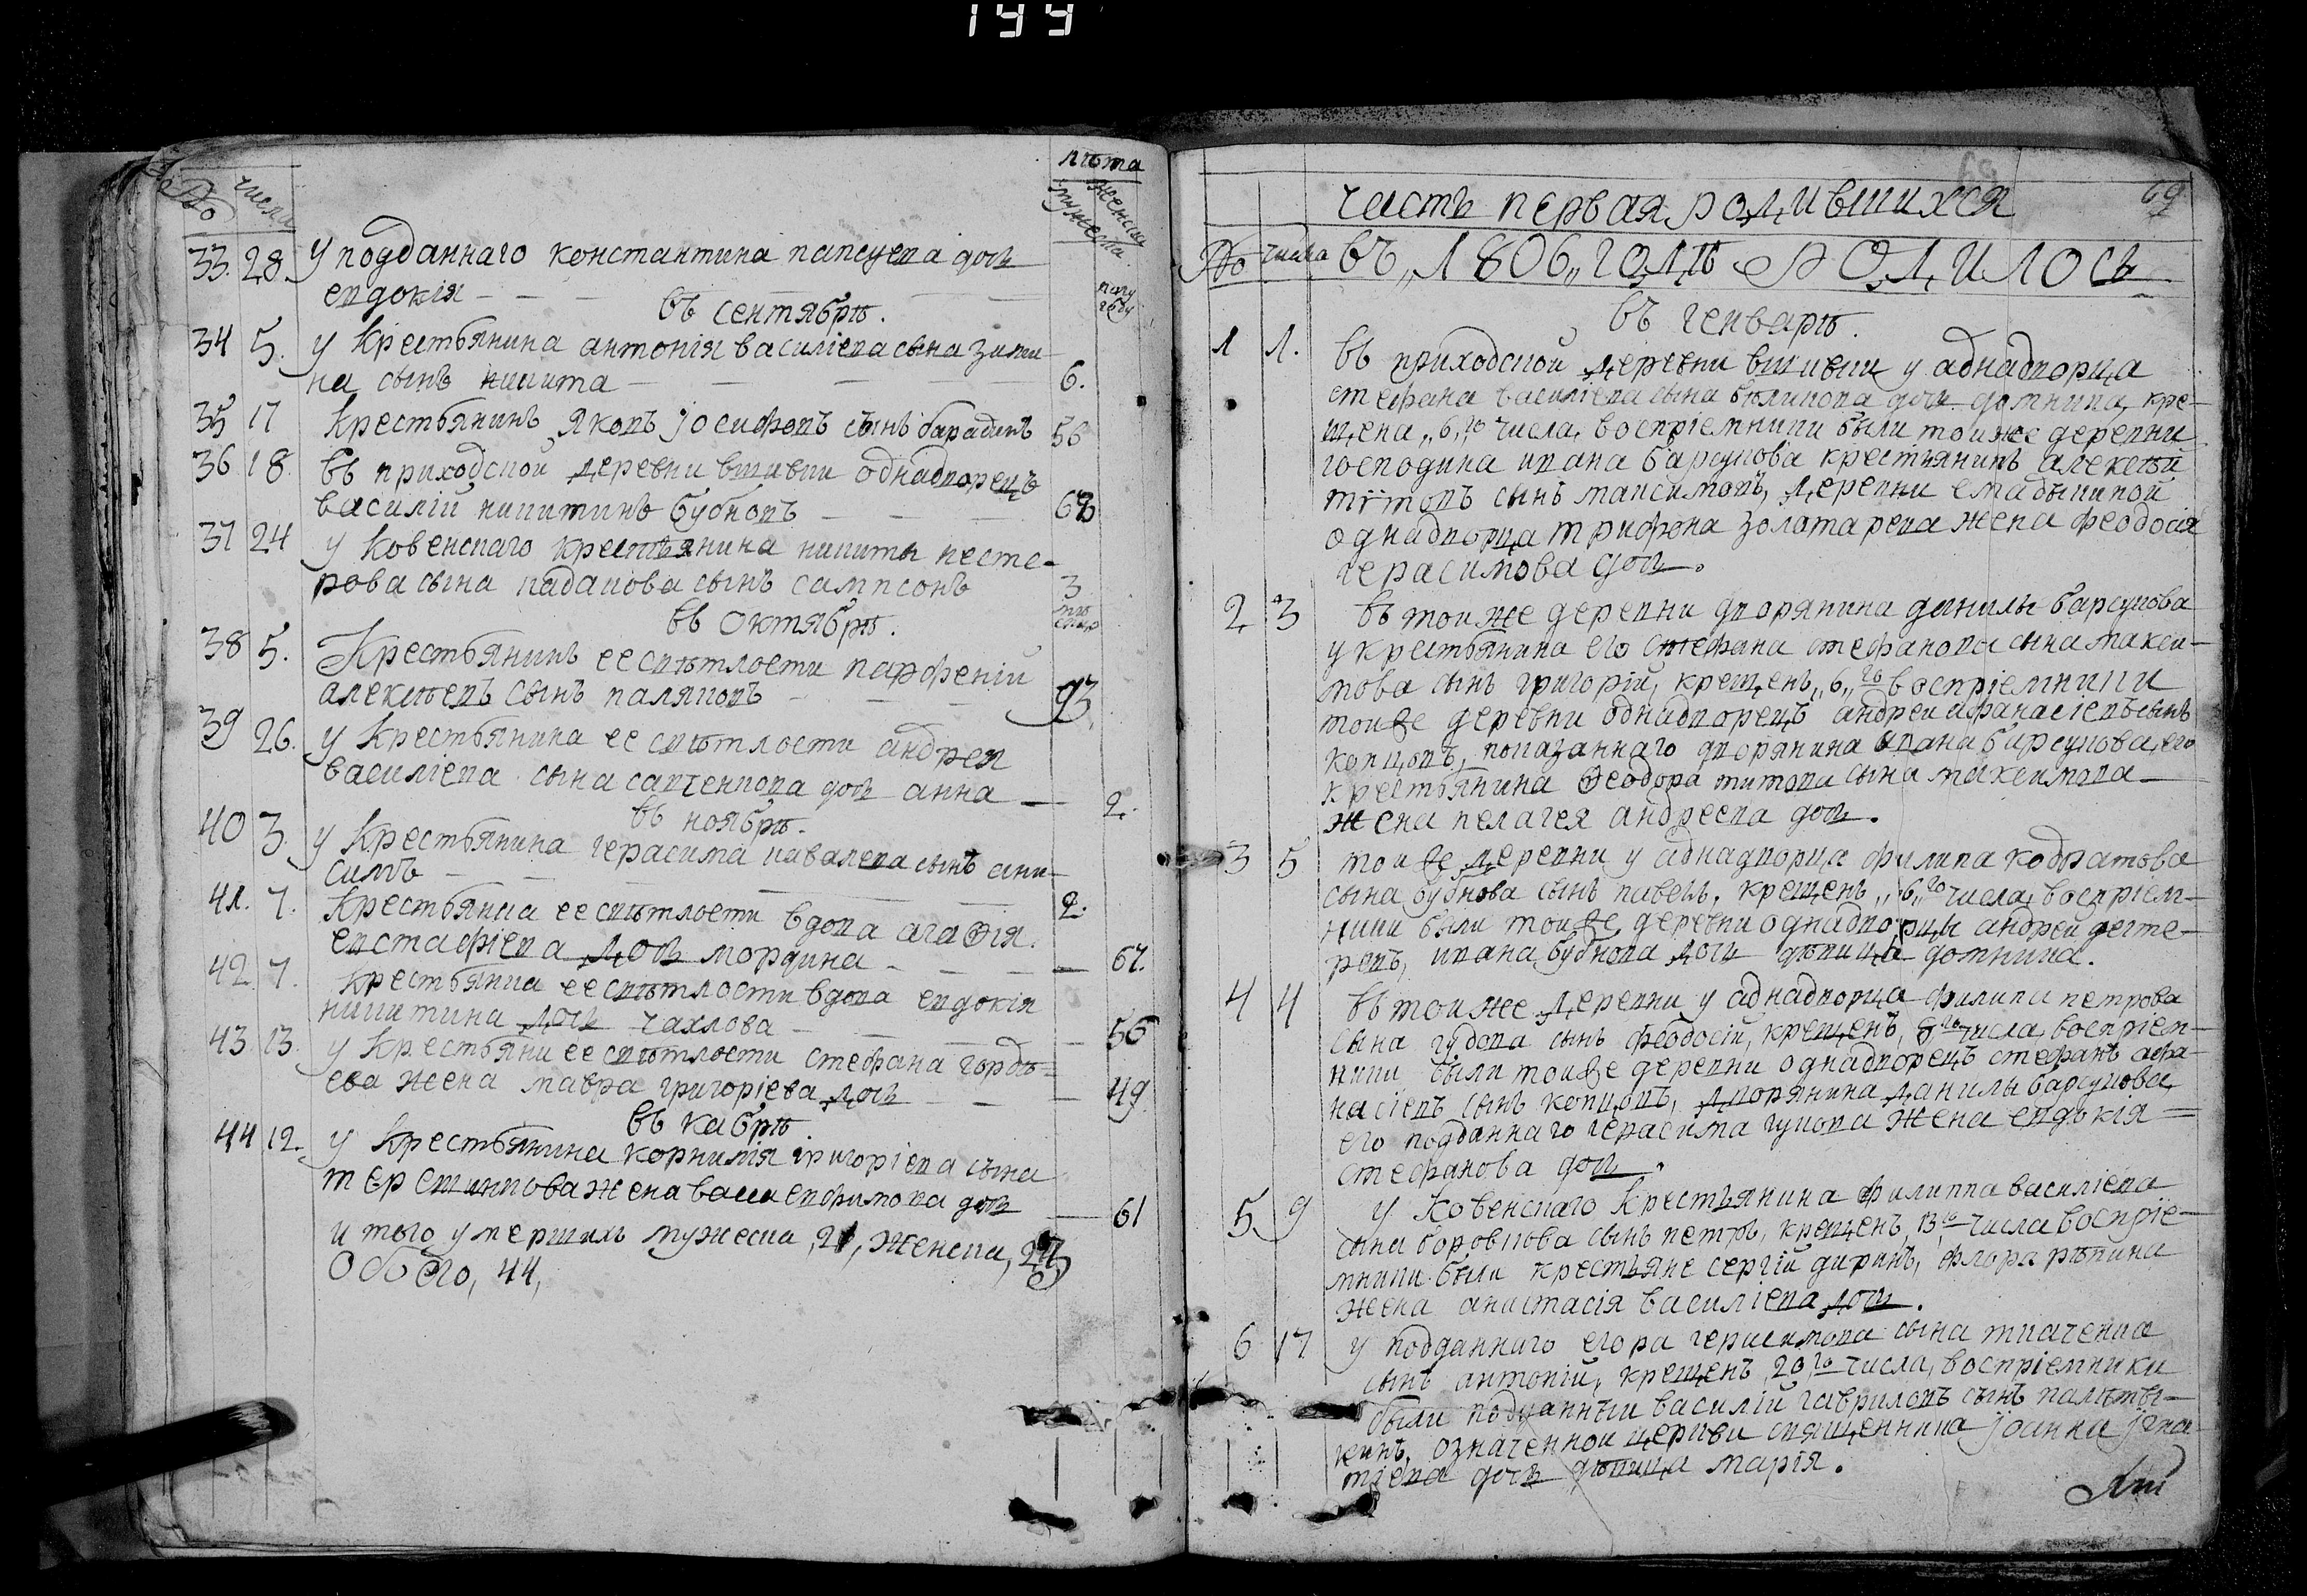 199
№ числа
лѣта
мужеска женска
33. 28. У подданнаго константина дочь
евдокія полу году
въ сентябрѣ.
34 5. у крестьянина антонія василіева сына зими
на сынъ никита 6.
35 17 крестьянинъ яковъ іосифовъ сынъ барадинъ 56
36 18. въ приходской деревни вшивки однадворецъ
василій никитинъ бубновъ
37 24 у ковенскаго крестьянина никиты несте-
рова сына сынъ сампсонъ 3
въ октябрѣ.
38 5. Крестьянинъ ее свѣтлости парфеній
алексѣевъ сынъ поляновъ 93
39 26. у крестьянина ее свѣтлости андрея
василіева сына савченкова дочь анна 2.
въ ноябрѣ.
40 3. у крестьянина герасима сынъ они
симъ 2.
41. 7. крестьянка ее свѣтлости вдова агаѳія
евстафіева дочь мордина 67.
42 7. крестьянка ее свѣтлости вдова евдокія
никитина дочь чахлова 56
43 13. у крестьяни ее свѣтлости стефана гордѣ=
ева жена мавра григоріева дочь 49
въ кабрѣ
44 12. у крестьянина корнилія григоріева сына
жена васса евфимова дочь 61
и того умершихъ мужеска, 21, женска, 23
обоего, 44,
69
часть первая родившихся
№ числа въ „1806„ годѣ родилось
въ генварѣ.
1 1. въ приходской деревни вшивки у аднадворца
стефана василіева сына бѣликова дочь домника, кре-
щена „6„го числа, воспріемники были тоиже деревни
господина ивана барсукова крестьянинъ алексѣй
тітовъ сынъ максимовъ, деревни
однадворца трифона золатарева жена феодосія
герасимова дочь.
2 3 въ тоиже деревни дворянина данилы барсукова
у крестьянина его стефана стефанова сына макси-
мова сынъ григорій, крещенъ „6„го воспріемники
тоиже деревни однадворецъ андреи афанасіевъ сынъ
копцовъ, показаннаго дворянина ивана барсукова, его
крестьянина Ѳеодора титова сына максимова
жена пелагея андреева дочь.
3 5 тоиже деревни у аднадворца филипа кодратова
сына бубнова сынъ павелъ, крещенъ „6„го числа, воспріем-
ники были тоиже деревни однадворцы андреи дегте-
ревъ, ивана бубнова дочь дѣвица домника.
4 4 въ тоиже деревни у аднадворца филипа петрова
сына гудова сынъ феодосій, крещенъ, 8го числа, воспріем-
ники были тоиже деревни однадворецъ стефанъ афа-
насіевъ сынъ копцовъ, дворянина данилы барсукова,
его подданнаго герасима гукова жена евдокія =
стефанова дочь.
5 9 У ковенскаго крестьянина филиппа василіева
сына боровкова сынъ петръ, крещенъ, 13го числа воспріе-
мники были крестьяне сергій диринъ, флора рѣпина
жена анастасія василіева дочь.
6 17 у подданнаго егора герасимова сына ткаченка
сынъ антоній, крещенъ 20го числа, воспріемники
были подданныи василій гавриловъ сынъ палѣты-
кинъ, означеннои церкви священника іоанна ігна
тіева дочь дѣвица марія.